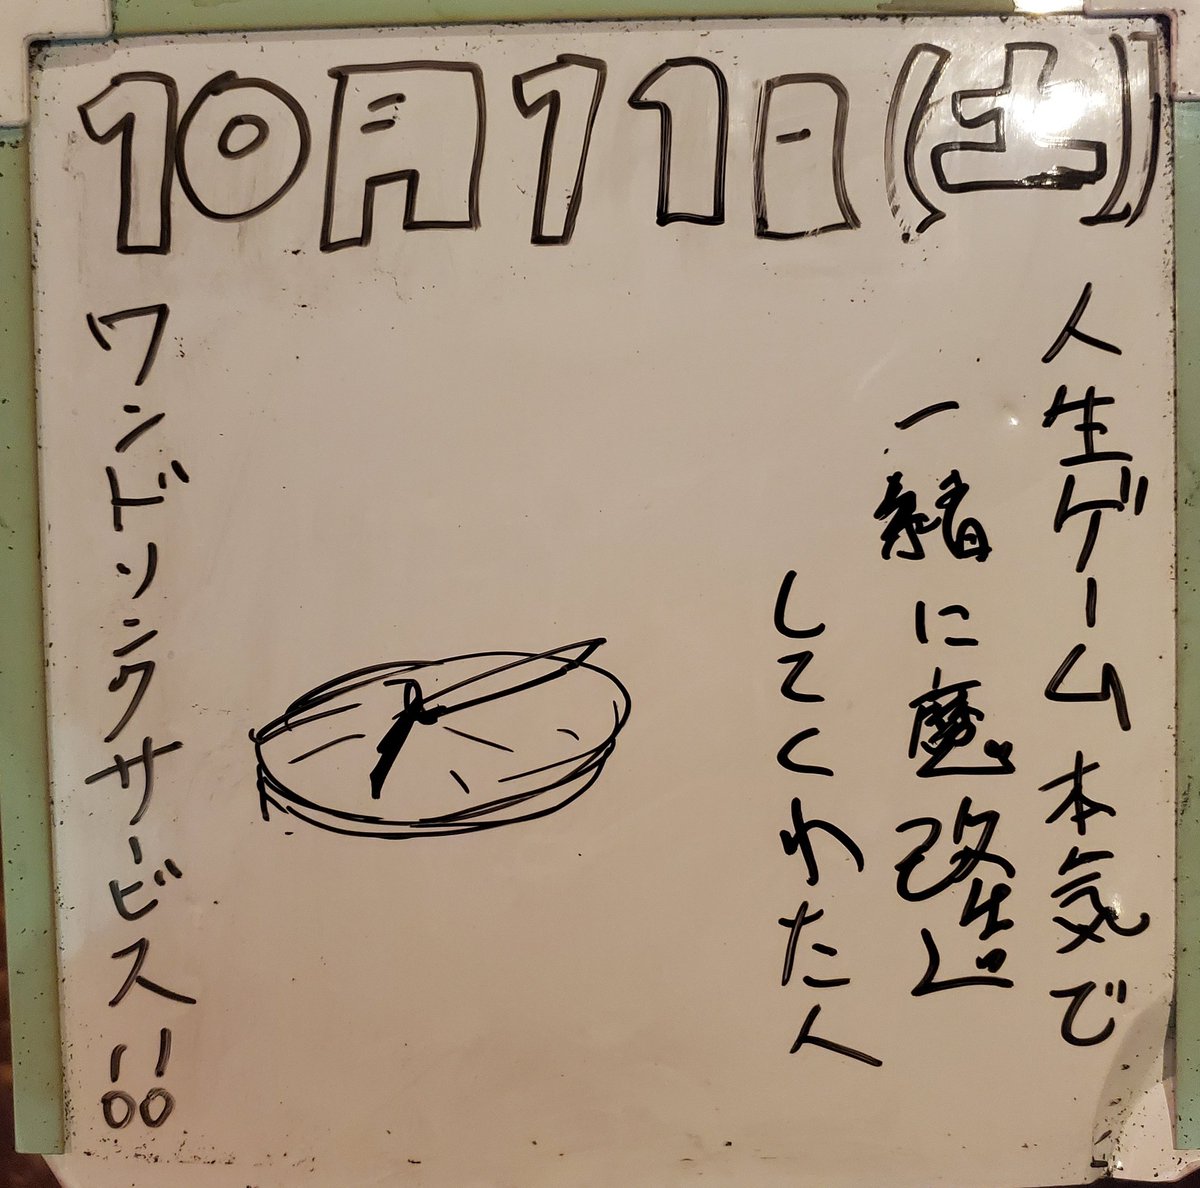 10月11日(土)
人生ゲーム本気で
一緒に魔改造
してくれた人
ワンドリンクサービス!!